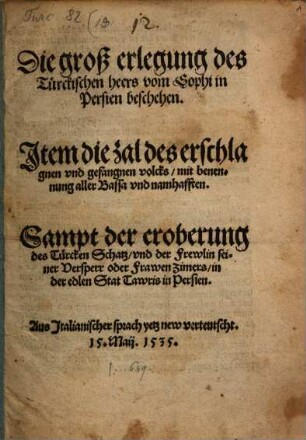 Turc 82 (13 12.
Die groß erlegung des
Türckischen heers vom Sophi in
Persien beschehen.
Item die zal des erschla
gnen vnd gefangnen volcks / mit benen-
nung aller Bassa vnd namhafften.
Sampt der eroberung
des Türcken Schatz / vnd der Frewlin sei-
ner Versperr oder Frawen Zimers / in
der edlen Stat Tawris in Persien.
Aus Italianischer sprach yetz new verteutscht.
15. Maij. 1535.